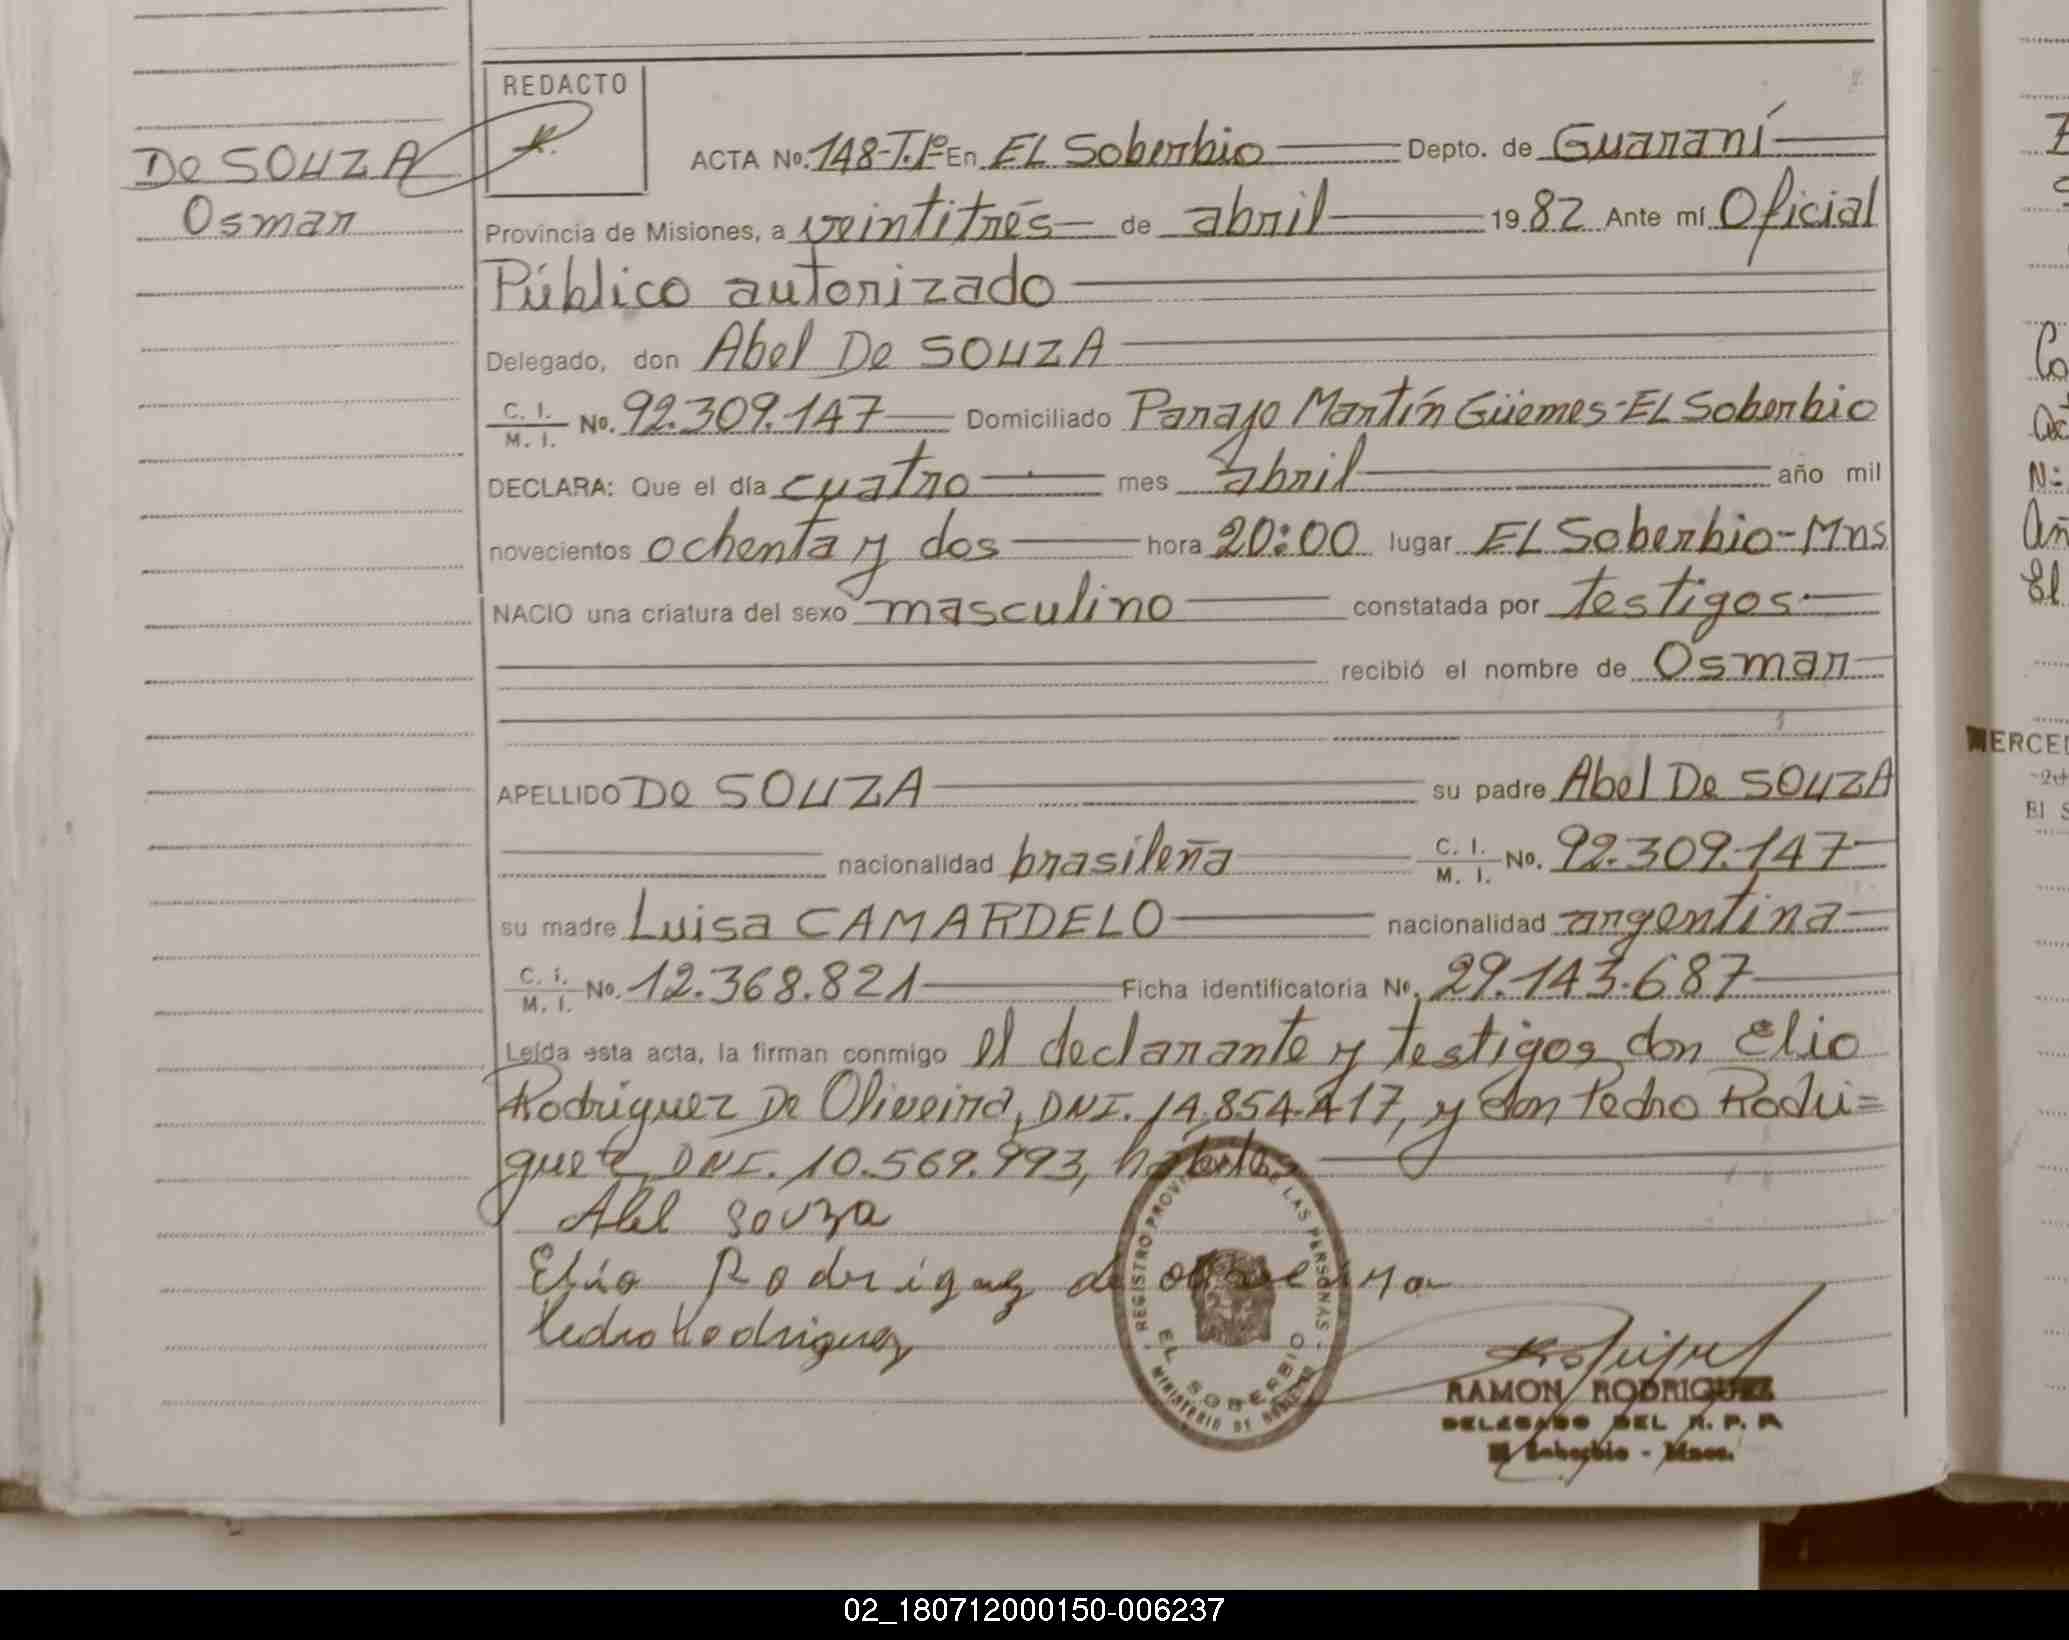 REDACTO
DE SOUZA
Osmar
ACTA No. 148-T.1º En EL Soberbio Depto. de Guaraní
Provincia de Misiones, a veintitrés de abril 1982 Ante mí Oficial
Público autorizado
Delegado, don Abel De SOUZA
C. I. / M. I. No. 92.309.147 Domiciliado Paraje Martín Güemes-EL Soberbio
DECLARA: Que el día cuatro mes abril año mil
novecientos ochenta y dos hora 20:00 lugar EL Soberbio-Mns
NACIO una criatura del sexo masculino constatada por testigos
recibió el nombre de Osmar
APELLIDO DE SOUZA su padre Abel De SOUZA
nacionalidad brasileña C. I. / M. I. No. 92.309.147
su madre Luisa CAMARDELO nacionalidad argentina
C. I. / M. I. No. 12.368.821 Ficha identificatoria No. 29.143.687
Leída esta acta, la firman conmigo el declarante y testigos don Elio
Rodriguez De Oliveira, DNI. 14.854.417, y don Pedro Rodri=
guez, DNI. 10.569.993, hábiles
Abel Souza
Elio Rodriguez de oliveira
Pedro Rodriguez
REGISTRO PROVINCIAL DE LAS PERSONAS
EL SOBERBIO
MINISTERIO DE
RAMON RODRIGUEZ
DELEGADO DEL R. P. P.
El Soberbio - Mnes.
02_180712000150-006237